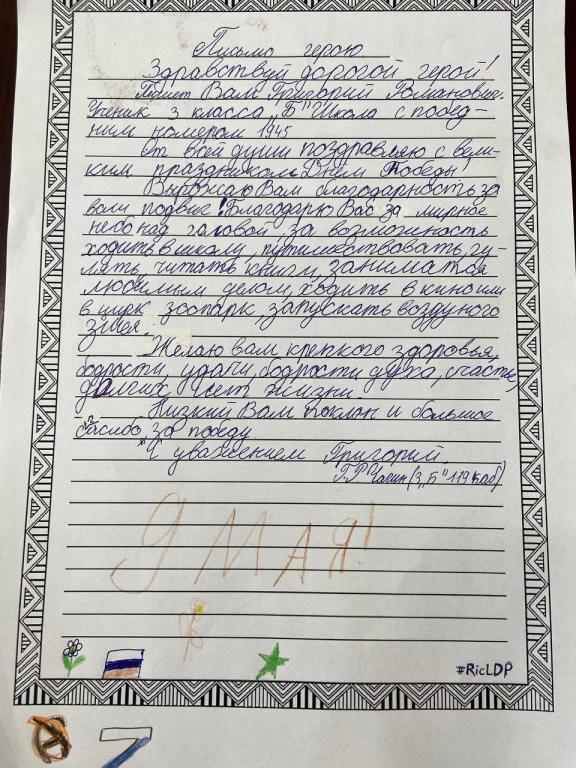 Письмо герою
Здравствуй дорогой герой!
Пишет Вам Григорий Романович.
Ученик 3 класса „Б" Школа с побед-
ним номером 1945
От всей души поздравляю с вели-
ким праздником Днем Победы!
Выражаю Вам благодарность за
ваш подвиг! Благодарю Вас за мирное
небо над головой, за возможность
ходить в школу, путишествовать, гу-
лять, читать книги, заниматся
любимым делом, ходить в кино или
в цирк зоопарк, запускать воздуного
змея.
Желаю вам крепкого здоровья,
бодрости, удачи, бодрости духа, счастье,
долгих лет жизни.
Низкий Вам поклон и большое
спасибо за победу
С уважением Григорий
Г.Р. (3„Б" 119 каб)
9 МАЯ!
#RicLDP